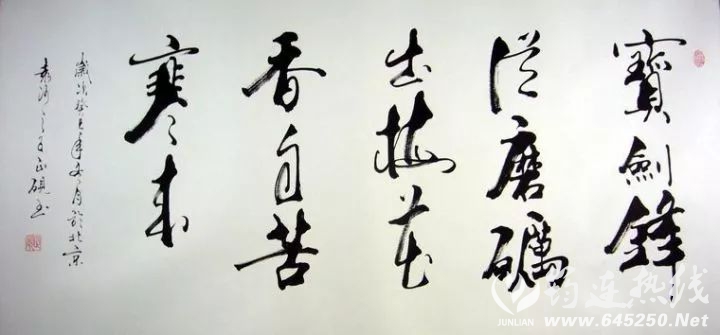 寶劍鋒
從磨礪
出梅花
香自苦
寒來
歲次癸巳年冬月於北京
筠连热线
JUNLIAN
www.645250.Net